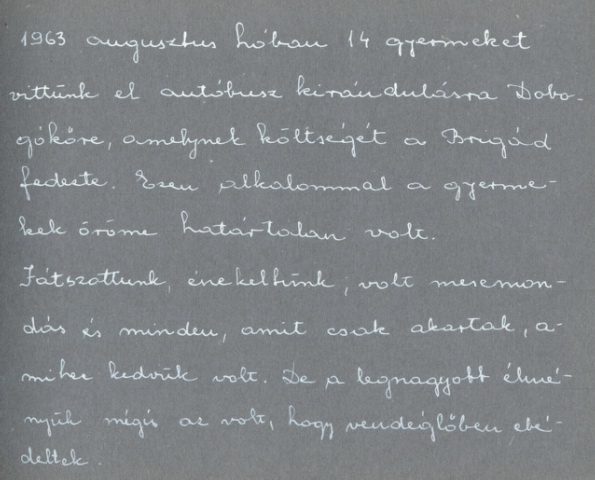 1963 augusztus hóban 14 gyermeket
vittünk el autóbusz kirándulásra Dobo-
gókőre, amelynek költségét a Brigád
fedezte. Ezen alkalommal a gyerme-
kek öröme határtalan volt.
Játszottunk, énekeltünk, volt mesemon-
dás és minden, amit csak akartak, a-
mihez kedvük volt. De a legnagyobb élmé-
nyük mégis az volt, hogy vendéglőben ebé-
deltek.